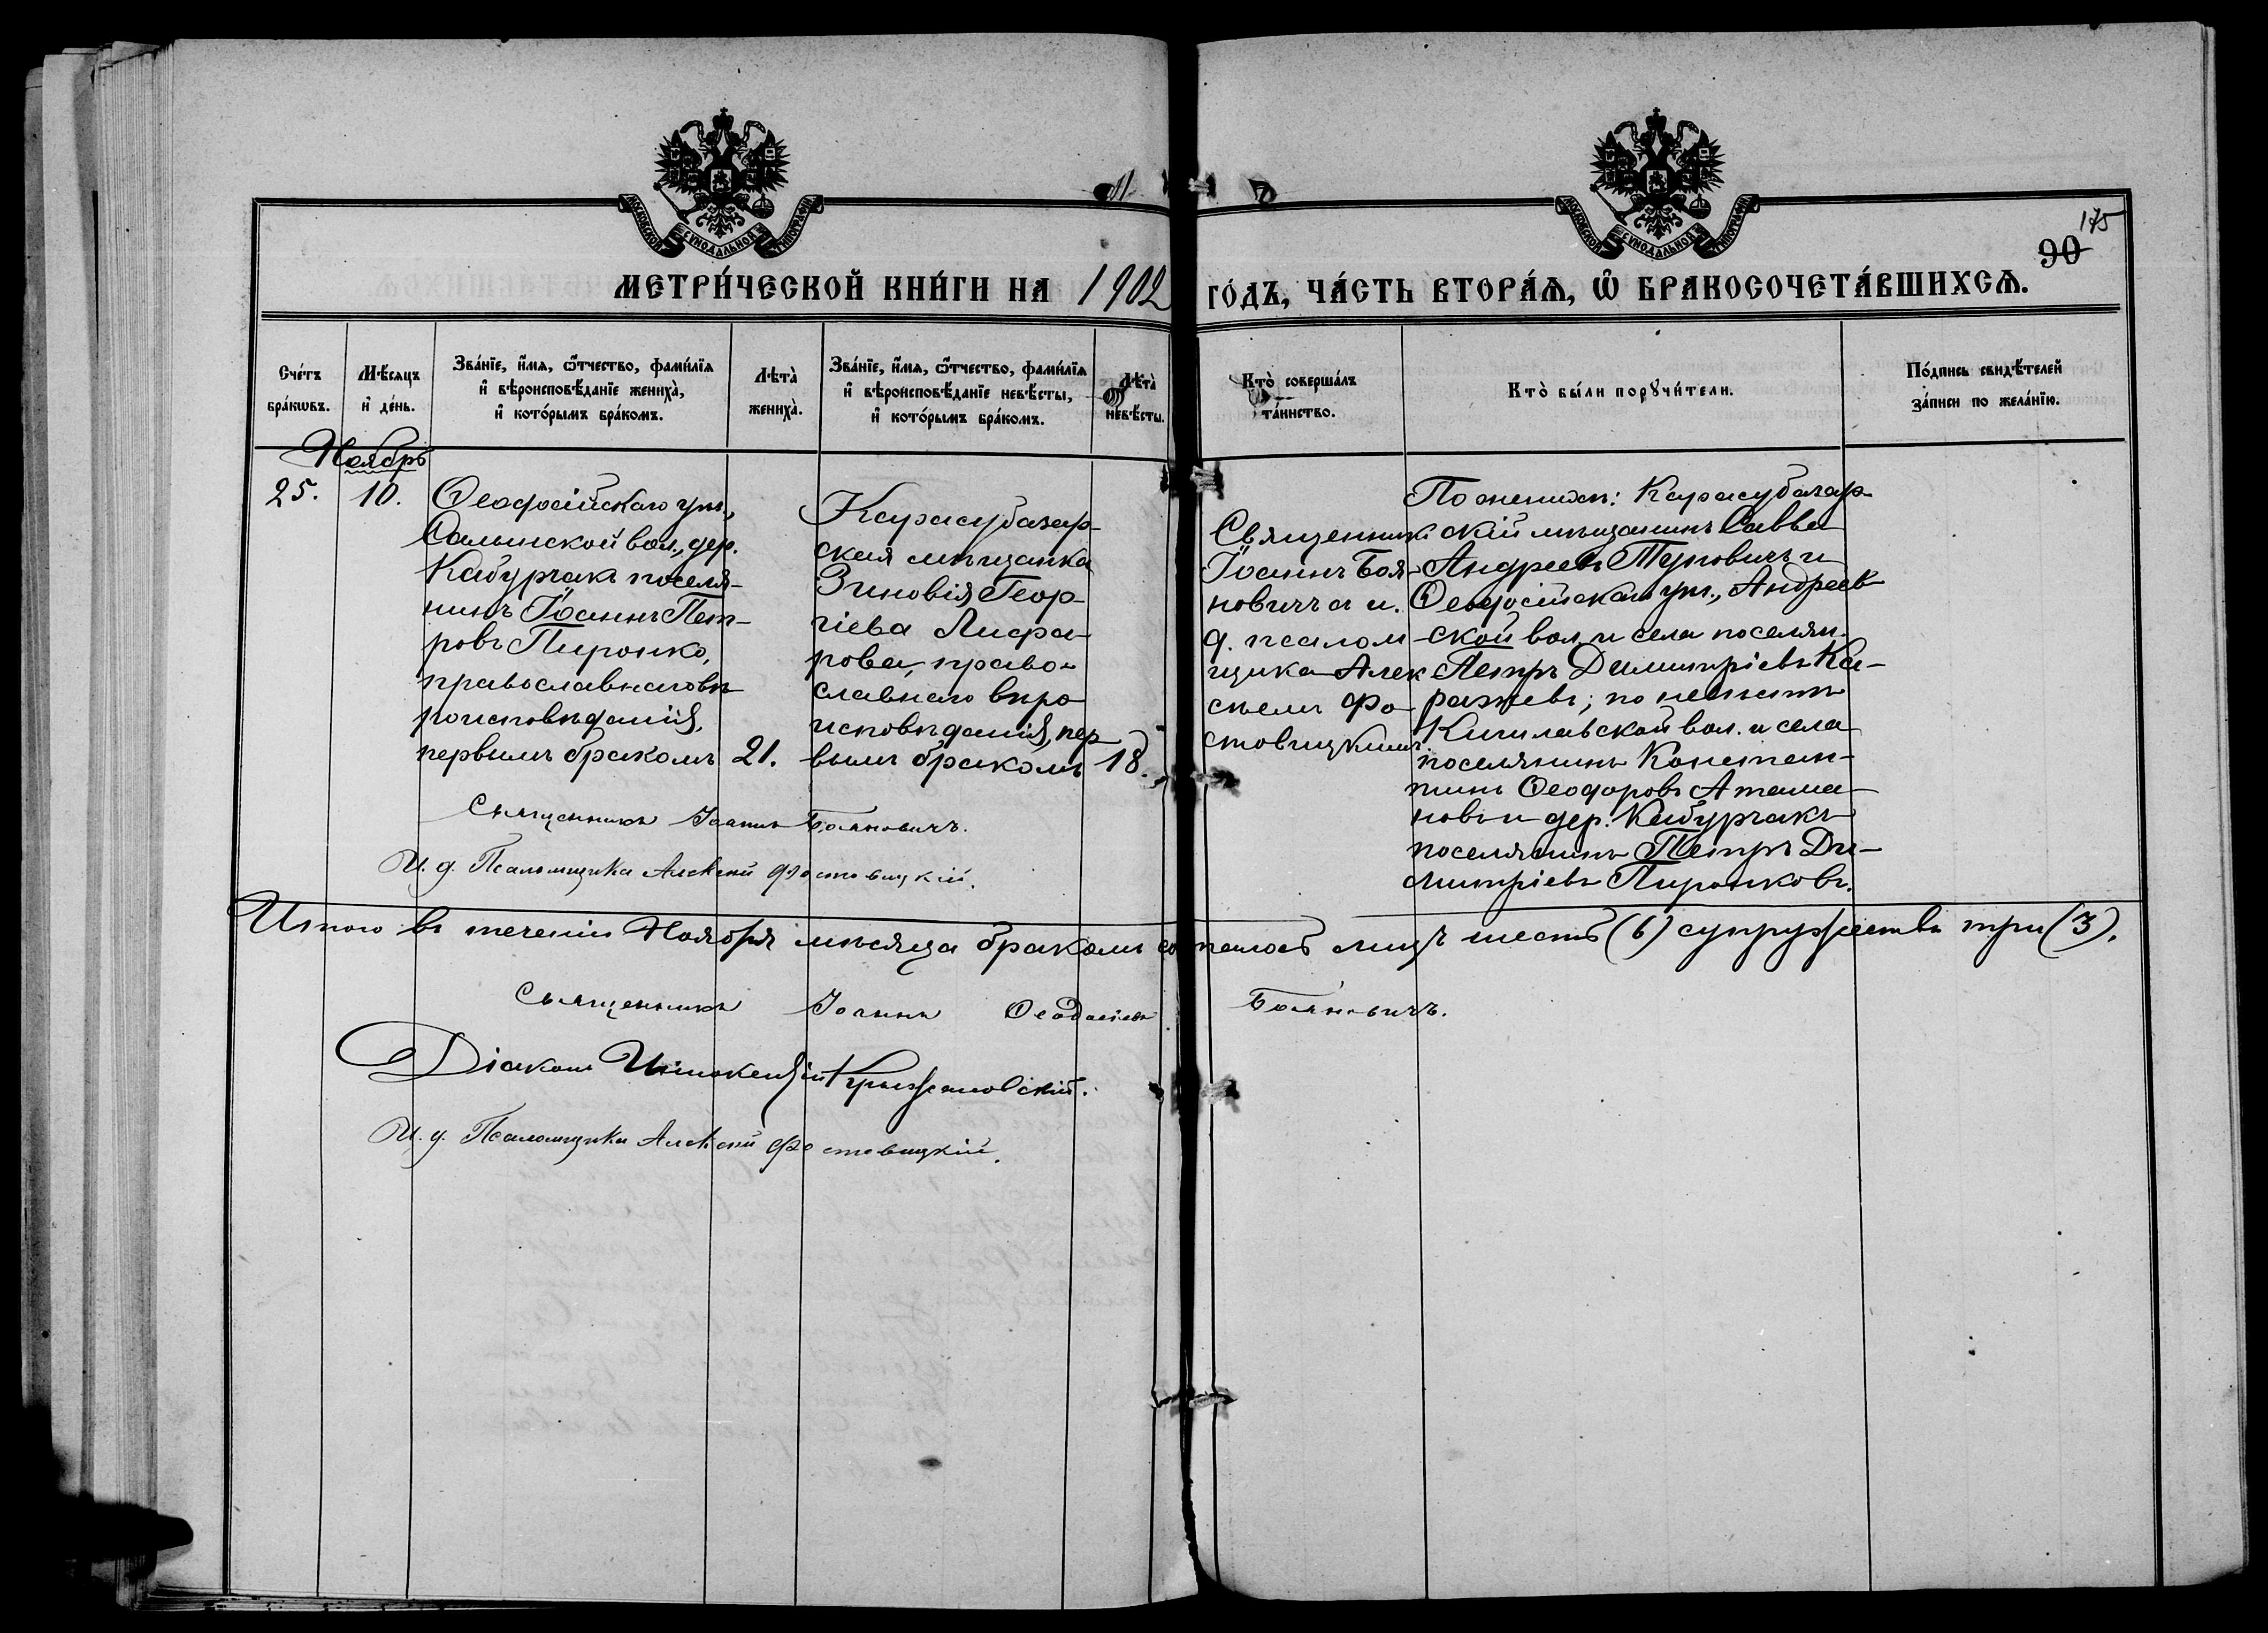 МОСКОВСКОЙ СѴНОДАЛЬНОЙ ТИПОГРАФІИ
МОСКОВСКОЙ СѴНОДАЛЬНОЙ ТИПОГРАФІИ
175
90
МЕТРИ́ЧЕСКОЙ КНИ́ГИ НА 1902 ГО́ДЪ, ЧА́СТЬ ВТОРА́Ѧ, Ѡ҆ БРАКОСОЧЕТА́ВШИХСѦ.
Сче́тъ
бра́кѡвъ.
Мѣ́сяцъ
и҆ де́нь.
Зва́нїе, и҆́мѧ, ѻ҆́тчество, фами́лїѧ
и҆ вѣроисповѣ́данїе жениха̀,
и҆ кото́рымъ бра́комъ.
Лѣта̀
жениха̀.
Зва́нїе, и҆́мѧ, ѻ҆́тчество, фами́лїѧ
и҆ вѣроисповѣ́данїе невѣ́сты,
и҆ кото́рымъ бра́комъ.
Лѣта̀
невѣ́сты.
Кто̀ соверша́лъ
та́инство.
Кто̀ бы́ли порꙋчи́тели.
По́дпись свидѣ́телей
за́писи по жела́нїю.
Ноябрь
25.
10.
Ѳеодосійскаго уѣз.,
Салынской вол., дер.
Кабурчакъ поселя-
нинъ Іоаннъ Пет-
ровъ Пиронко,
православнаго вѣ-
роисповѣданія,
первымъ бракомъ
21.
Карасубазар-
ская мѣщанка
Зиновія Геор-
гіева
рова, право-
славнаго вѣро
исповѣданія, пер
вымъ бракомъ
18.
Священникъ
Іоаннъ Боя-
новичъ и и.
д. псалом-
щика Алек
сѣемъ Фо-
стовицкимъ.
По женихѣ: Карасубазар-
скій мѣщанинъ Савва
Андреевъ Туповичъ и
Ѳеодосійскаго уѣз., Андреев
ской вол. и села поселян.
Петръ Димитріевъ Ка-
ражевъ; по невѣстѣ
Кишлавской вол. и села
поселянинъ Констан-
тинъ Ѳеодоровъ Атама-
новъ и дер. Кабурчакъ
поселянинъ Петръ Ди-
митріевъ Пиронковъ.
Священникъ Іоаннъ Бояновичъ.
И. д. Псаломщика Алексѣй Фостовицкій.
Итого въ теченіи Ноября мѣсяца бракомъ сочталось лицъ шесть (6) супружествъ три (3).
Священникъ Іоаннъ Ѳеодосіевъ Бояновичъ.
Діаконъ Иннокентій Крыжановскій.
И. д. Псаломщика Алексѣй Фостовицкій.